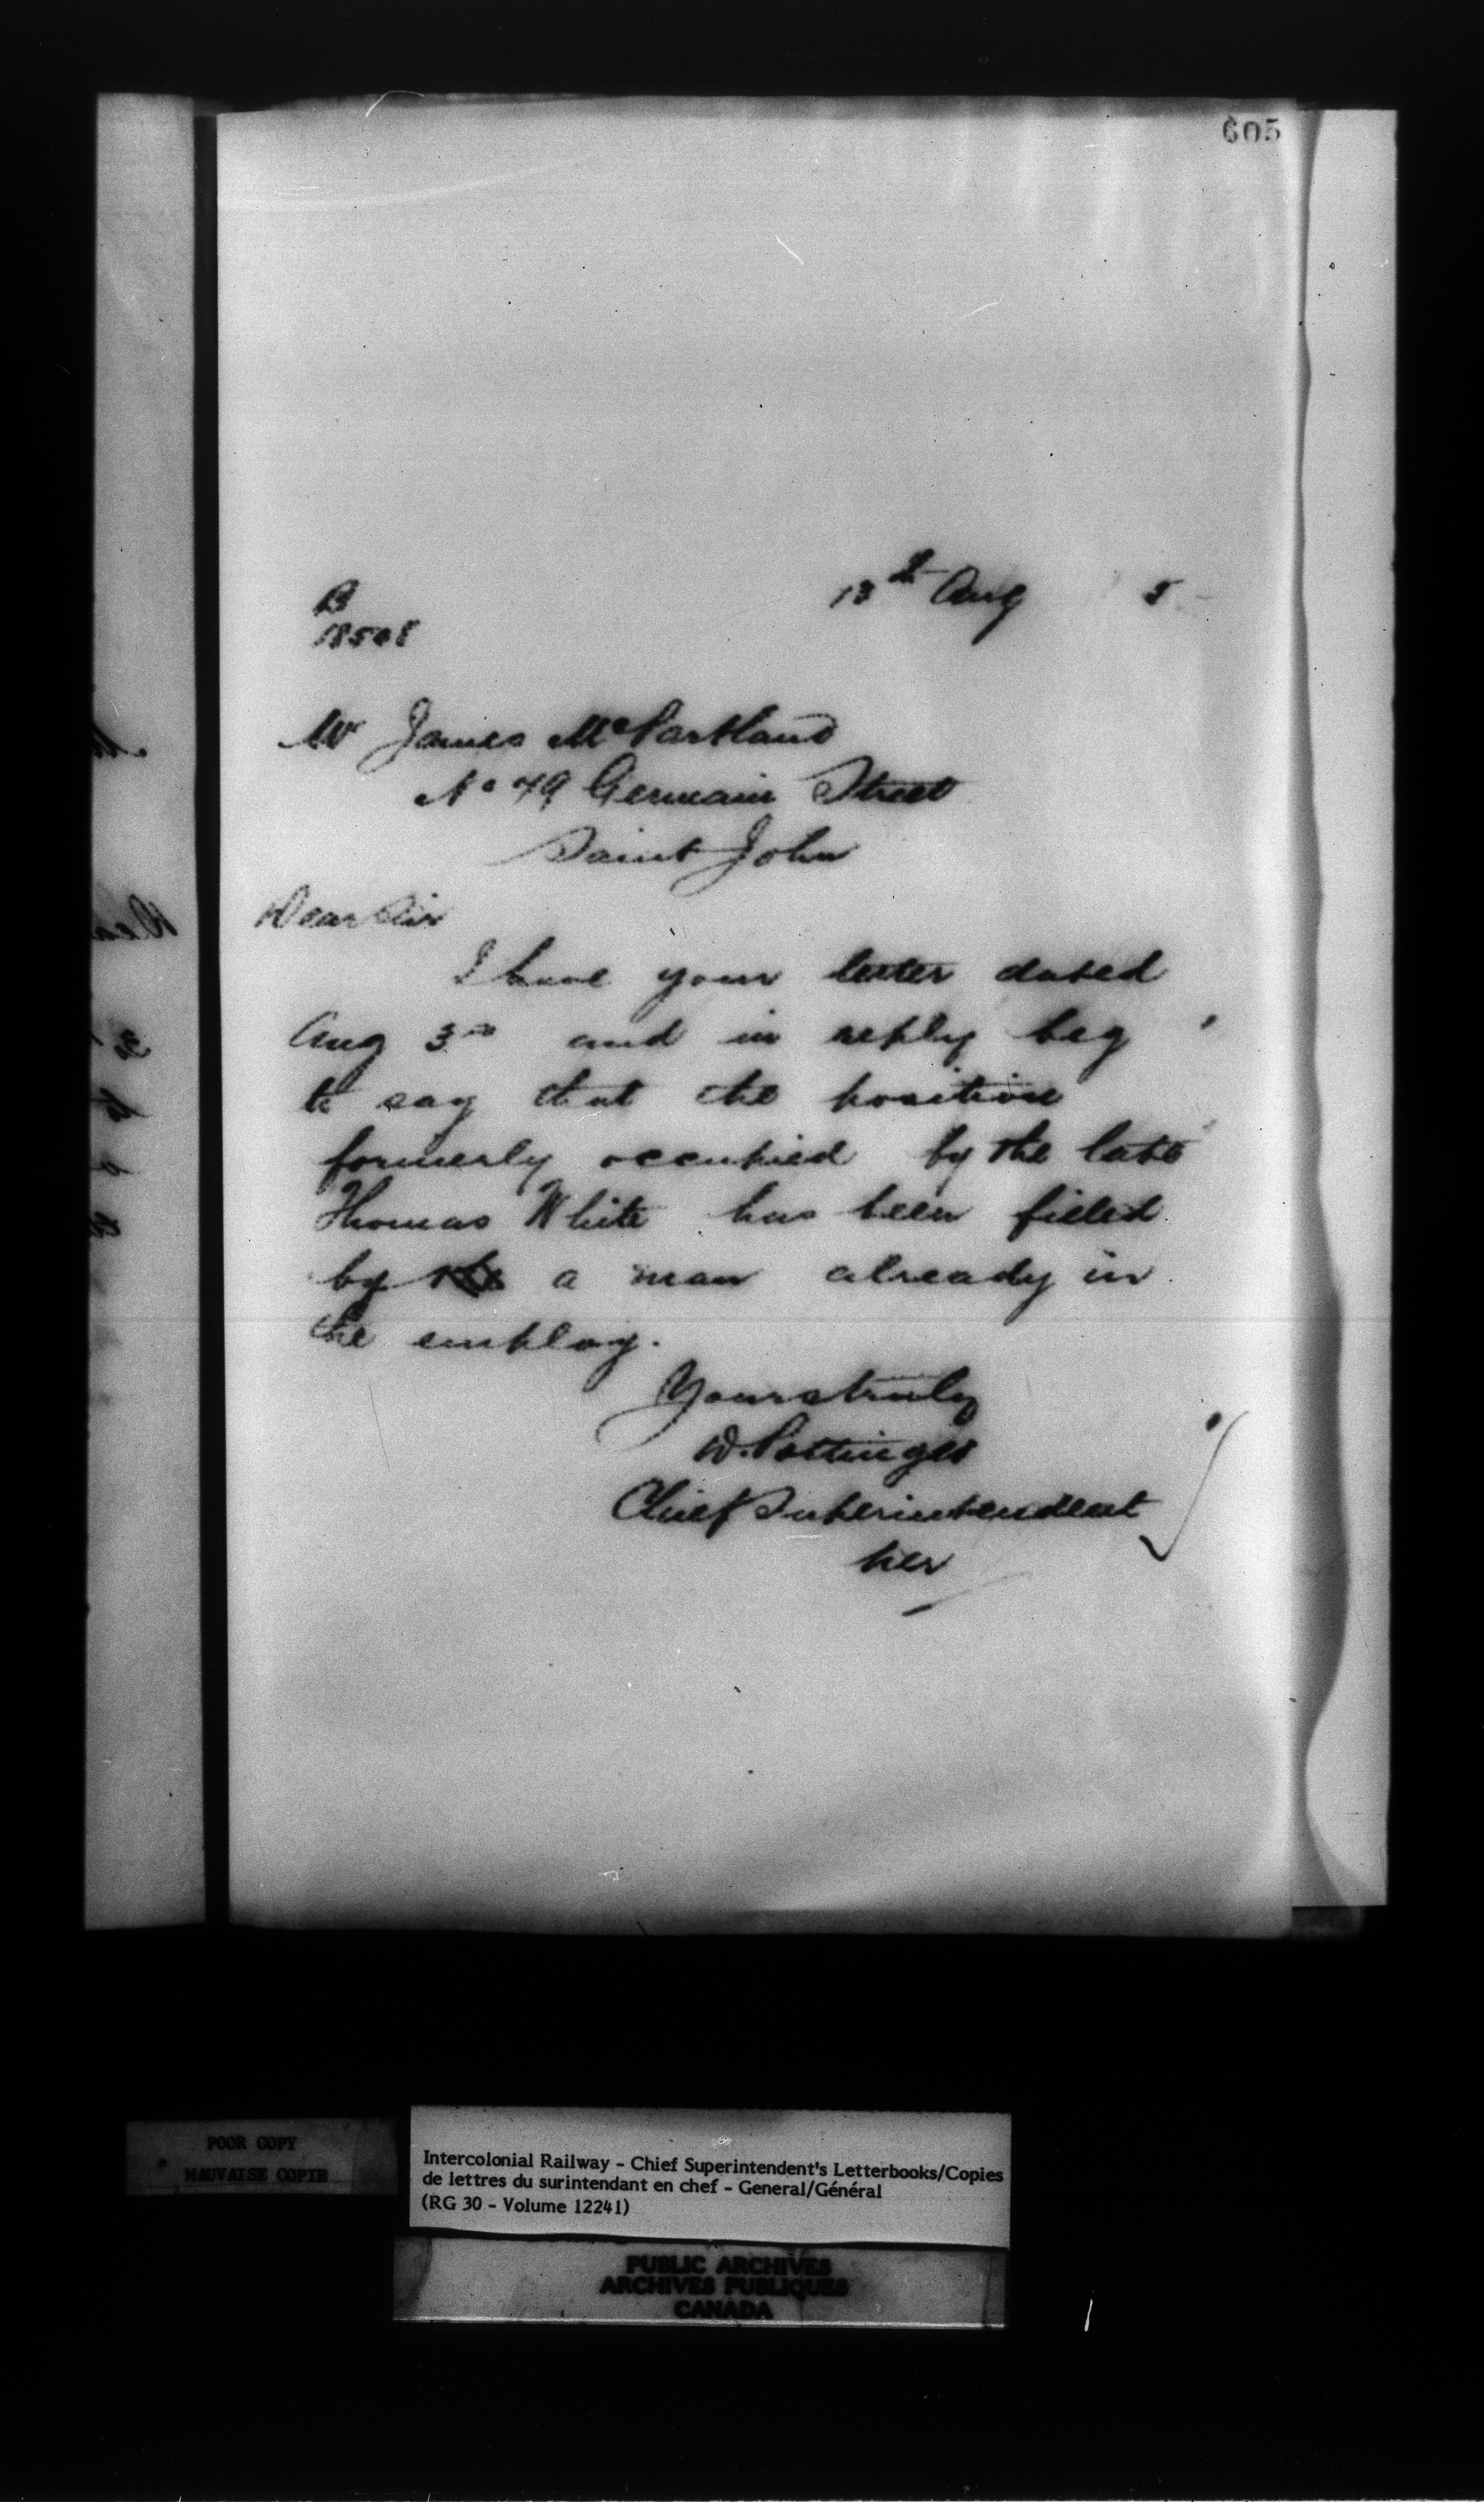 605
13th Aug 5
B
18508
Mr James McPartland
No 79 Germain Street
Saint John
Dear Sir
I have your letter dated
Aug 3rd and in reply beg
to say that the position
formerly occupied by the late
Thomas White has been filled
by a man already in
the employ.
Yours truly
D. Pottinger
Chief Superintendent
per
POOR COPY
MAUVAISE COPIE
Intercolonial Railway - Chief Superintendent's Letterbooks/Copies
de lettres du surintendant en chef - General/Général
(RG 30 - Volume 12241)
PUBLIC ARCHIVES
ARCHIVES PUBLIQUES
CANADA